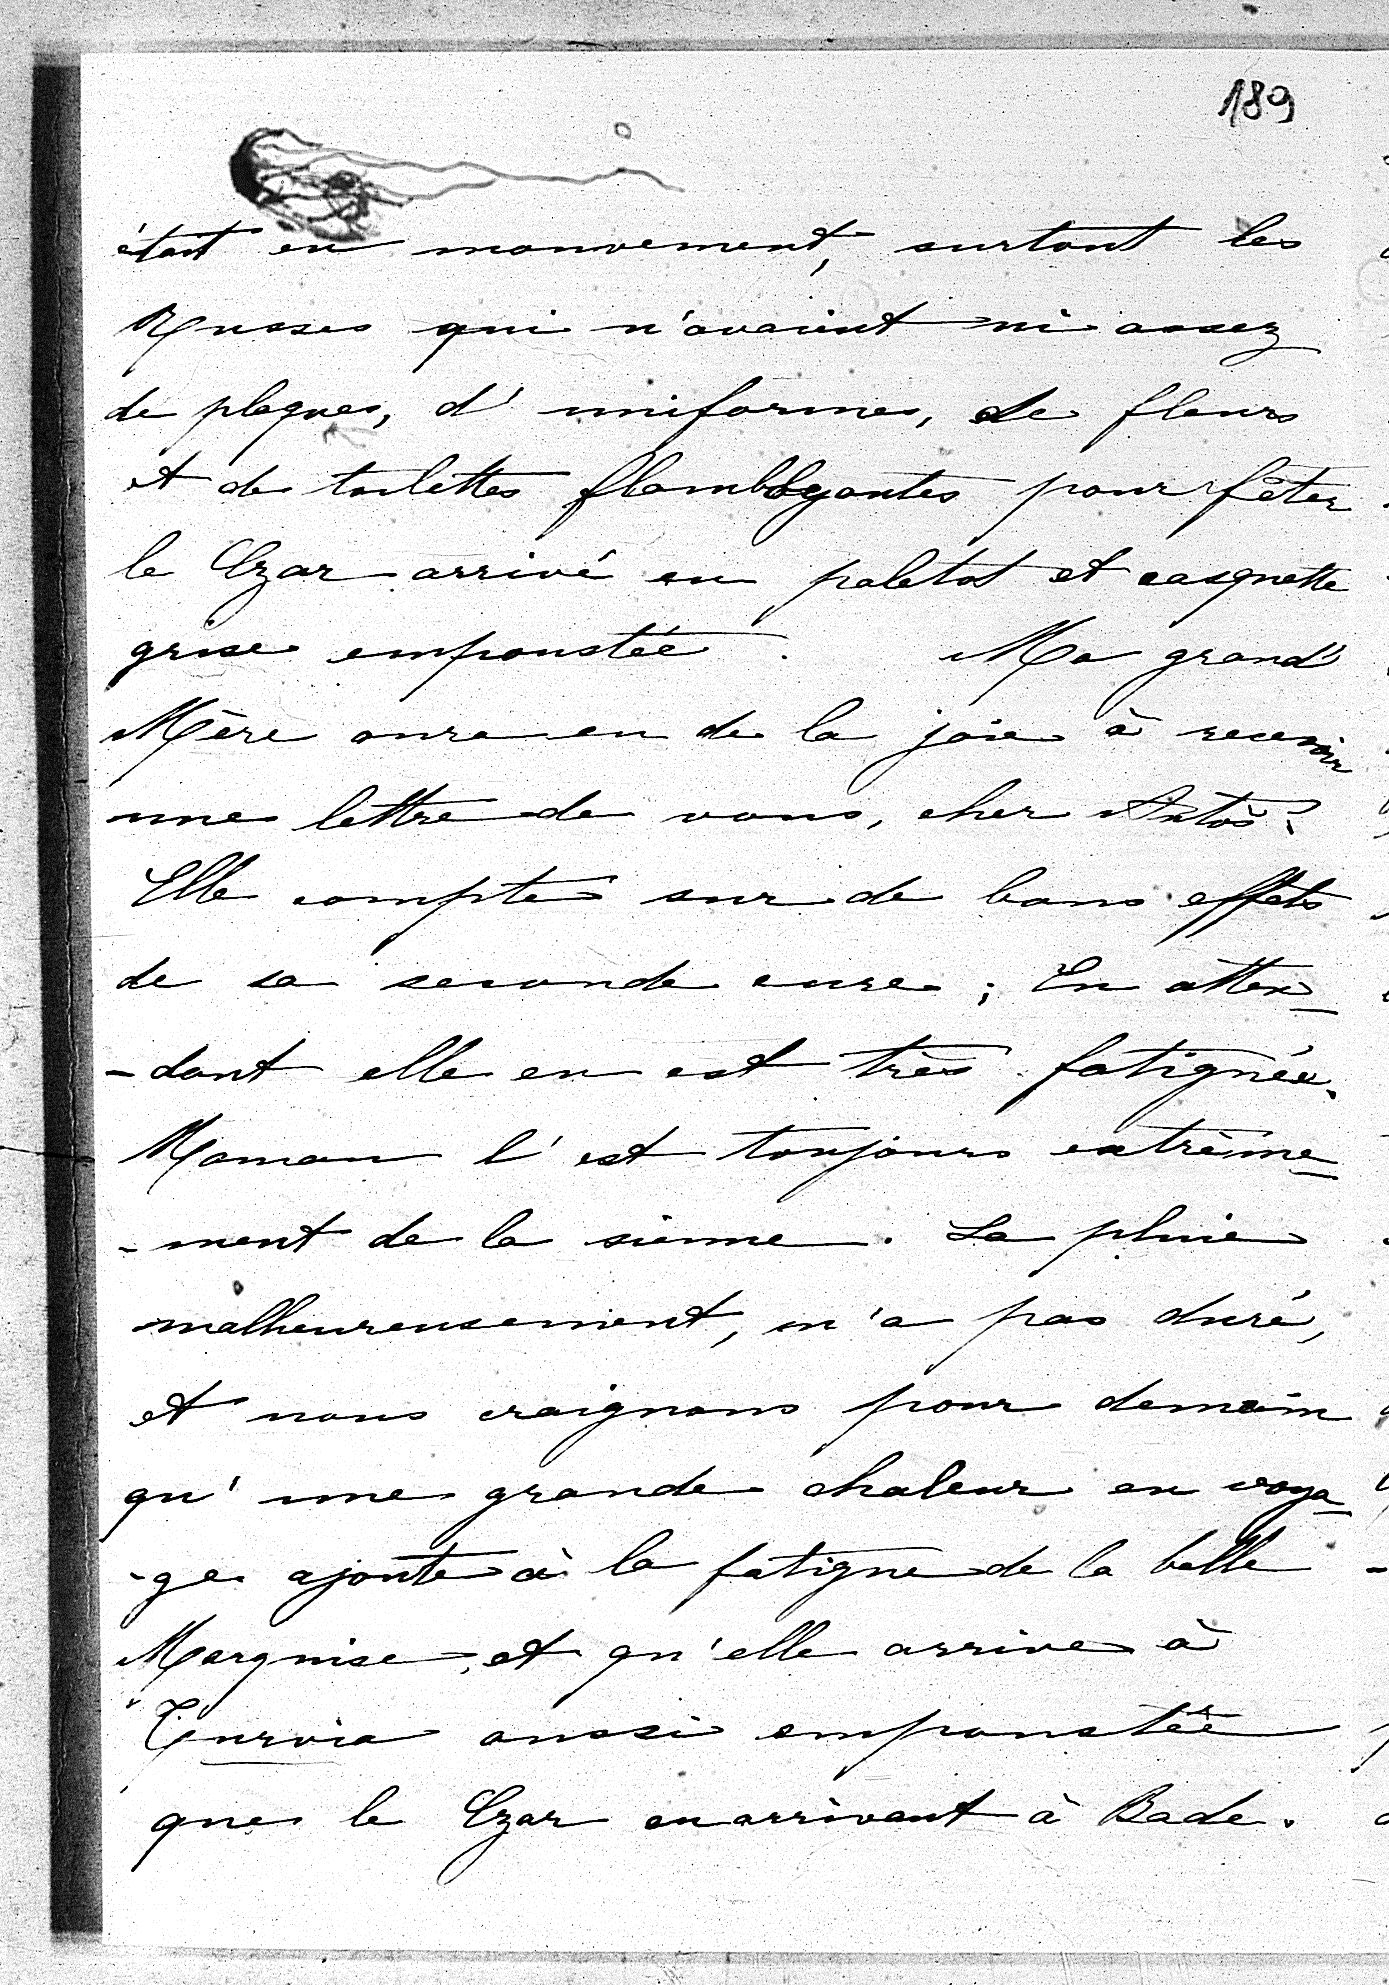 189
était en mouvement, surtout les
Russes qui n'avaient ni assez
de plaques, d'uniformes, de fleurs
et de toilettes flamboyantes pour fêter
le Czar arrivé en paletot et casquette
grise empoustée. Ma grand'
Mère aura eu de la joie à recevoir
une lettre de vous, cher Antoś.
Elle compte sur de bons effets
de sa seconde cure; En atten-
-dant elle en est très fatiguée.
Maman l'est toujours extrême-
-ment de la sienne. La pluie
malheureusement, n'a pas duré,
et nous craignons pour demain
qu'une grande chaleur en voya-
-ge ajoute à la fatigue de la belle
Marquise, et qu'elle arrive à
Turvia aussi empoustée
que le Czar en arrivant à Bade.